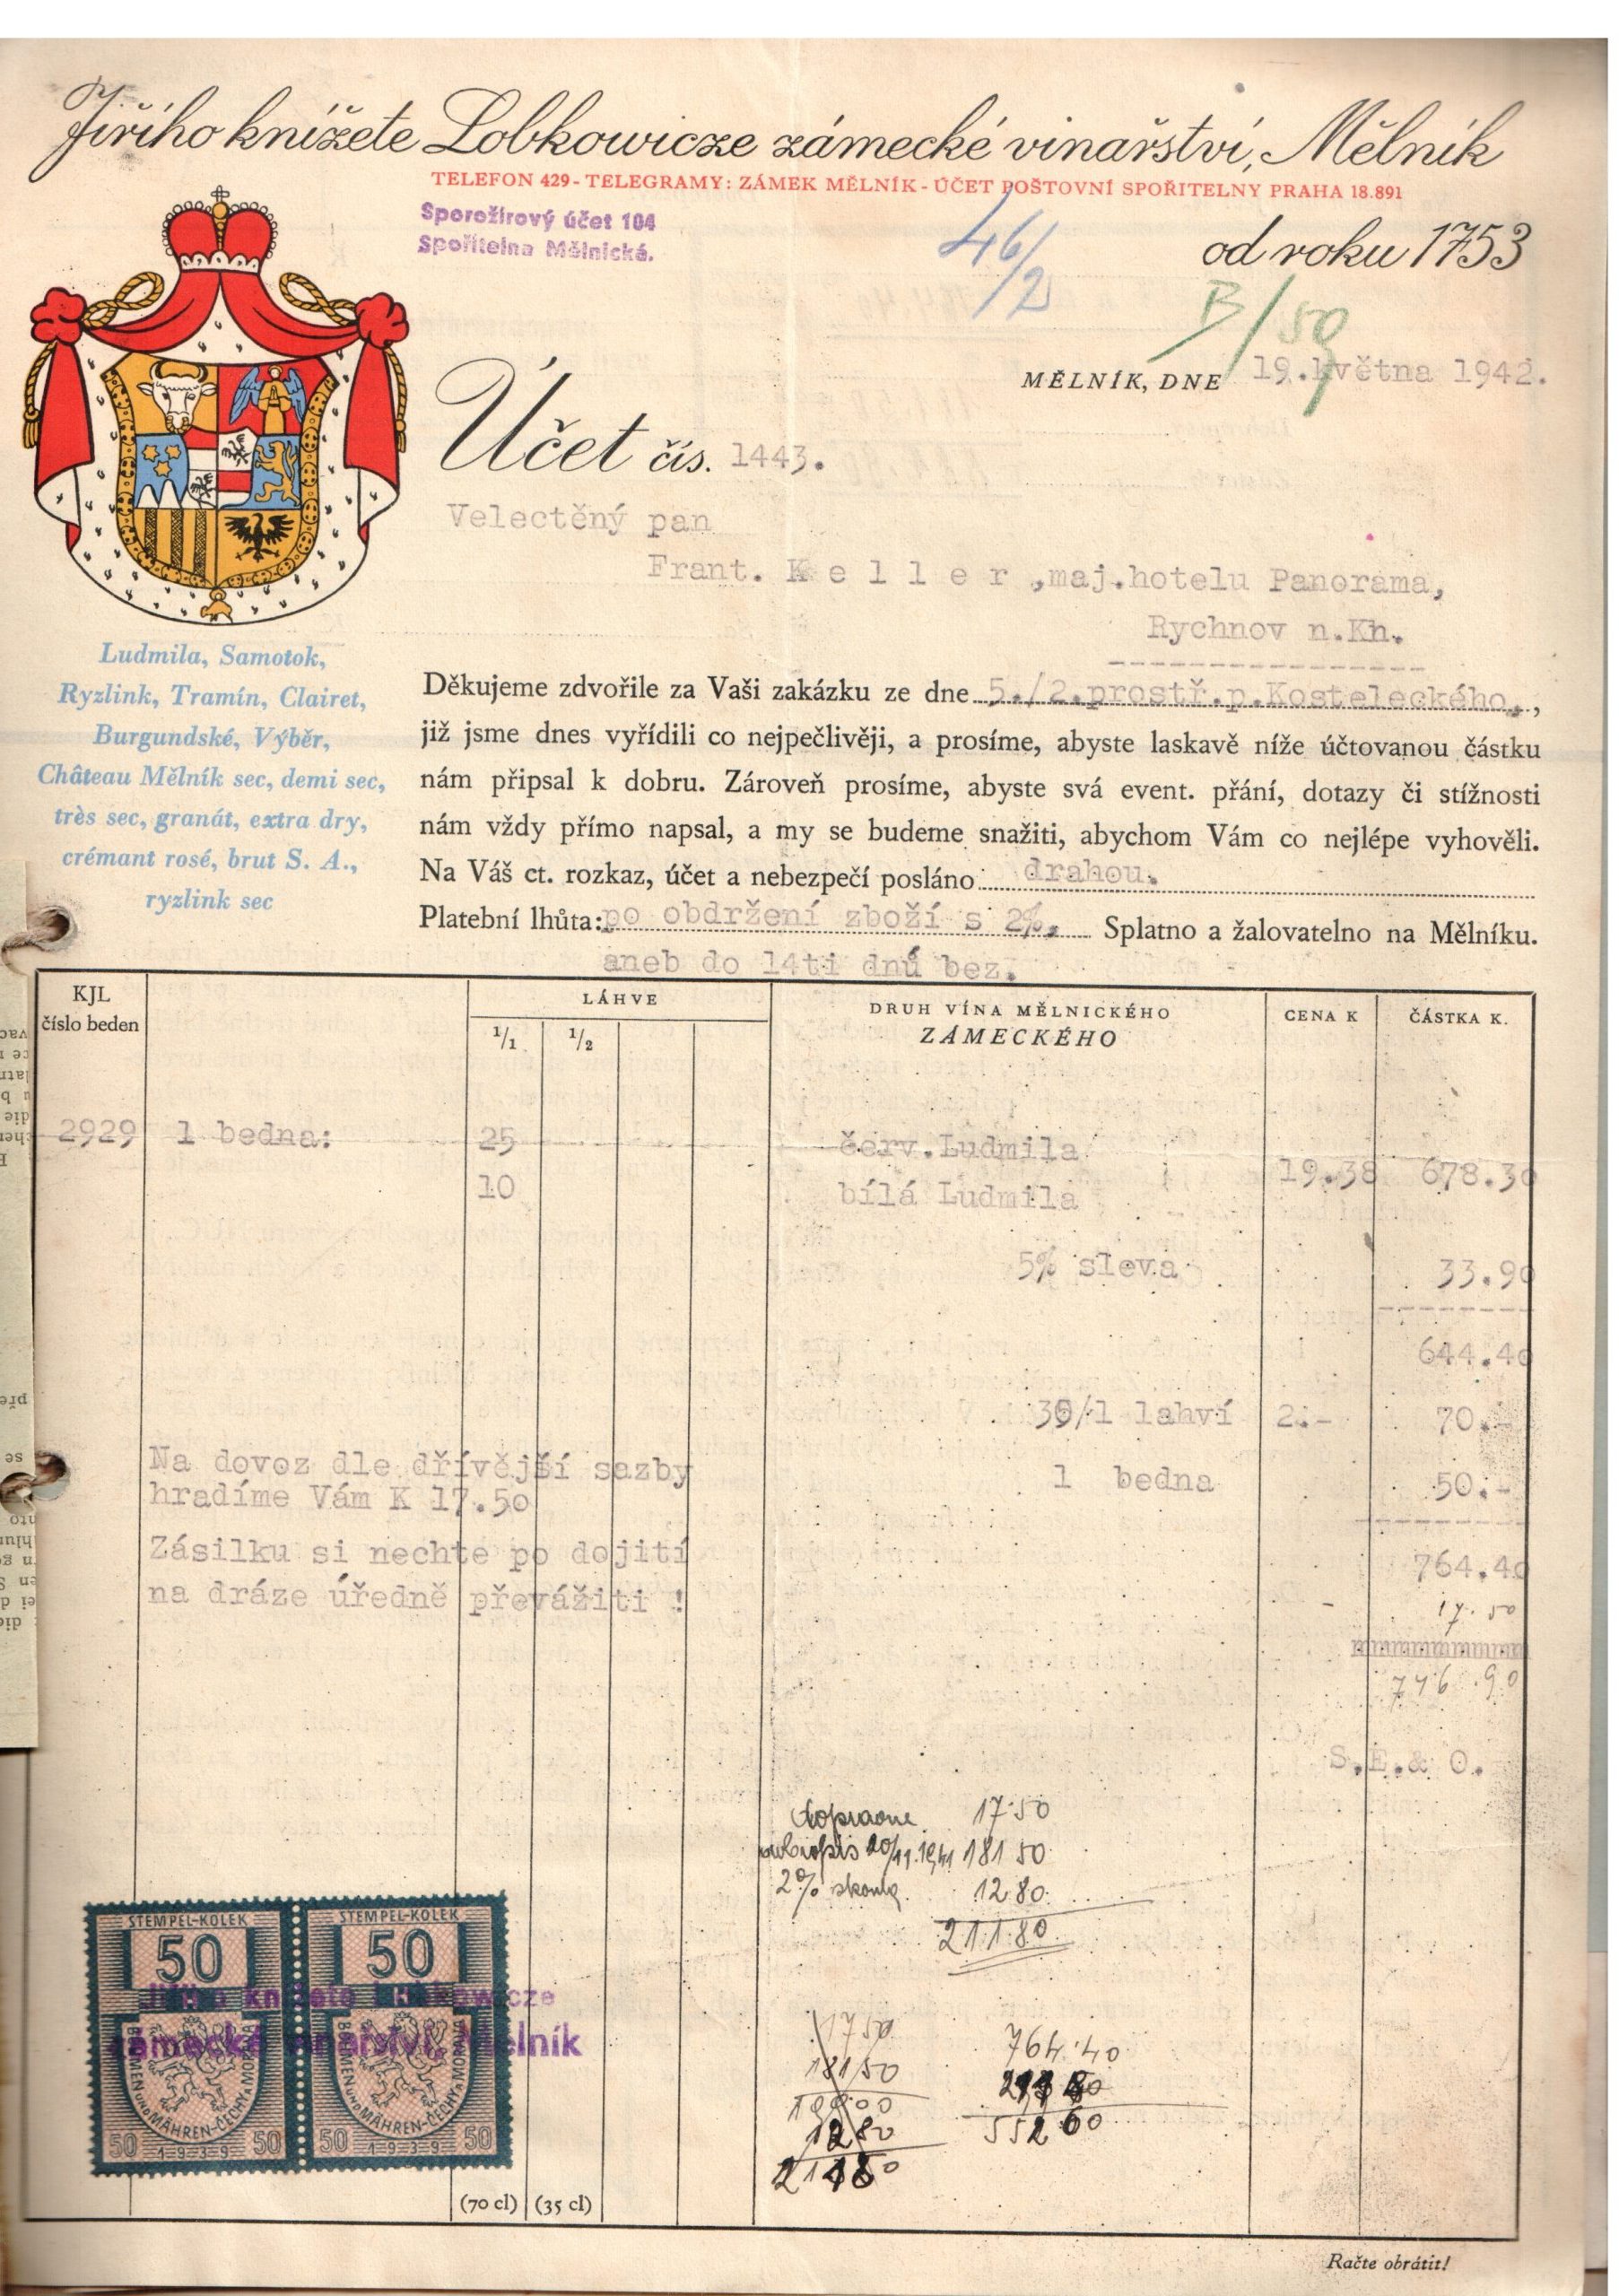 Jiřího knížete Lobkowicze zámecké vinařství, Mělník
TELEFON 429 - TELEGRAMY: ZÁMEK MĚLNÍK - ÚČET POŠTOVNÍ SPOŘITELNY PRAHA 18.891
Sporožirový účet 104
Spořitelna Mělnická.
46/2
od roku 1753
B/59
MĚLNÍK, DNE 19.května 1942.
Účet čís. 1443.
Velectěný pan
Frant. K e l l e r ,maj.hotelu Panorama,
Rychnov n.Kn.
Ludmila, Samotok,
Ryzlink, Tramín, Clairet,
Burgundské, Výběr,
Château Mělník sec, demi sec,
très sec, granát, extra dry,
crémant rosé, brut S. A.,
ryzlink sec
Děkujeme zdvořile za Vaši zakázku ze dne 5./2.prostř.p.Kosteleckého,,
již jsme dnes vyřídili co nejpečlivěji, a prosíme, abyste laskavě níže účtovanou částku
nám připsal k dobru. Zároveň prosíme, abyste svá event. přání, dotazy či stížnosti
nám vždy přímo napsal, a my se budeme snažiti, abychom Vám co nejlépe vyhověli.
Na Váš ct. rozkaz, účet a nebezpečí posláno drahou.
Platební lhůta: po obdržení zboží s 2%, Splatno a žalovatelno na Mělníku.
aneb do 14ti dnů bez.
KJL
číslo beden
LÁHVE
1/1 1/2
DRUH VÍNA MĚLNICKÉHO
ZÁMECKÉHO
CENA K
ČÁSTKA K.
2929 1 bedna: 25 červ.Ludmila
10 bílá Ludmila 19.38 678.30
5% sleva 33.90
644.40
35/1 lahví 2.- 70.-
Na dovoz dle dřívější sazby
hradíme Vám K 17.50
1 bedna 50.-
Zásilku si nechte po dojití
na dráze úředně převážiti !
764.40
17.50
746.90
S.E.& O.
dopravné 17.50
20/11.1941 181 50
2% skonto 12.80
211.80
17 50
181 50
199 00
12 80
211 80
764.40
211 80
552 60
STEMPEL-KOLEK
50
BÖHMEN UND MÄHREN-ČECHY A MORAVA
50 1-9-3-9 50
STEMPEL-KOLEK
50
BÖHMEN UND MÄHREN-ČECHY A MORAVA
50 1-9-3-9 50
Jiřího knížete Lobkowicze
zámecké vinařství, Mělník
(70 cl) (35 cl)
Račte obrátit!